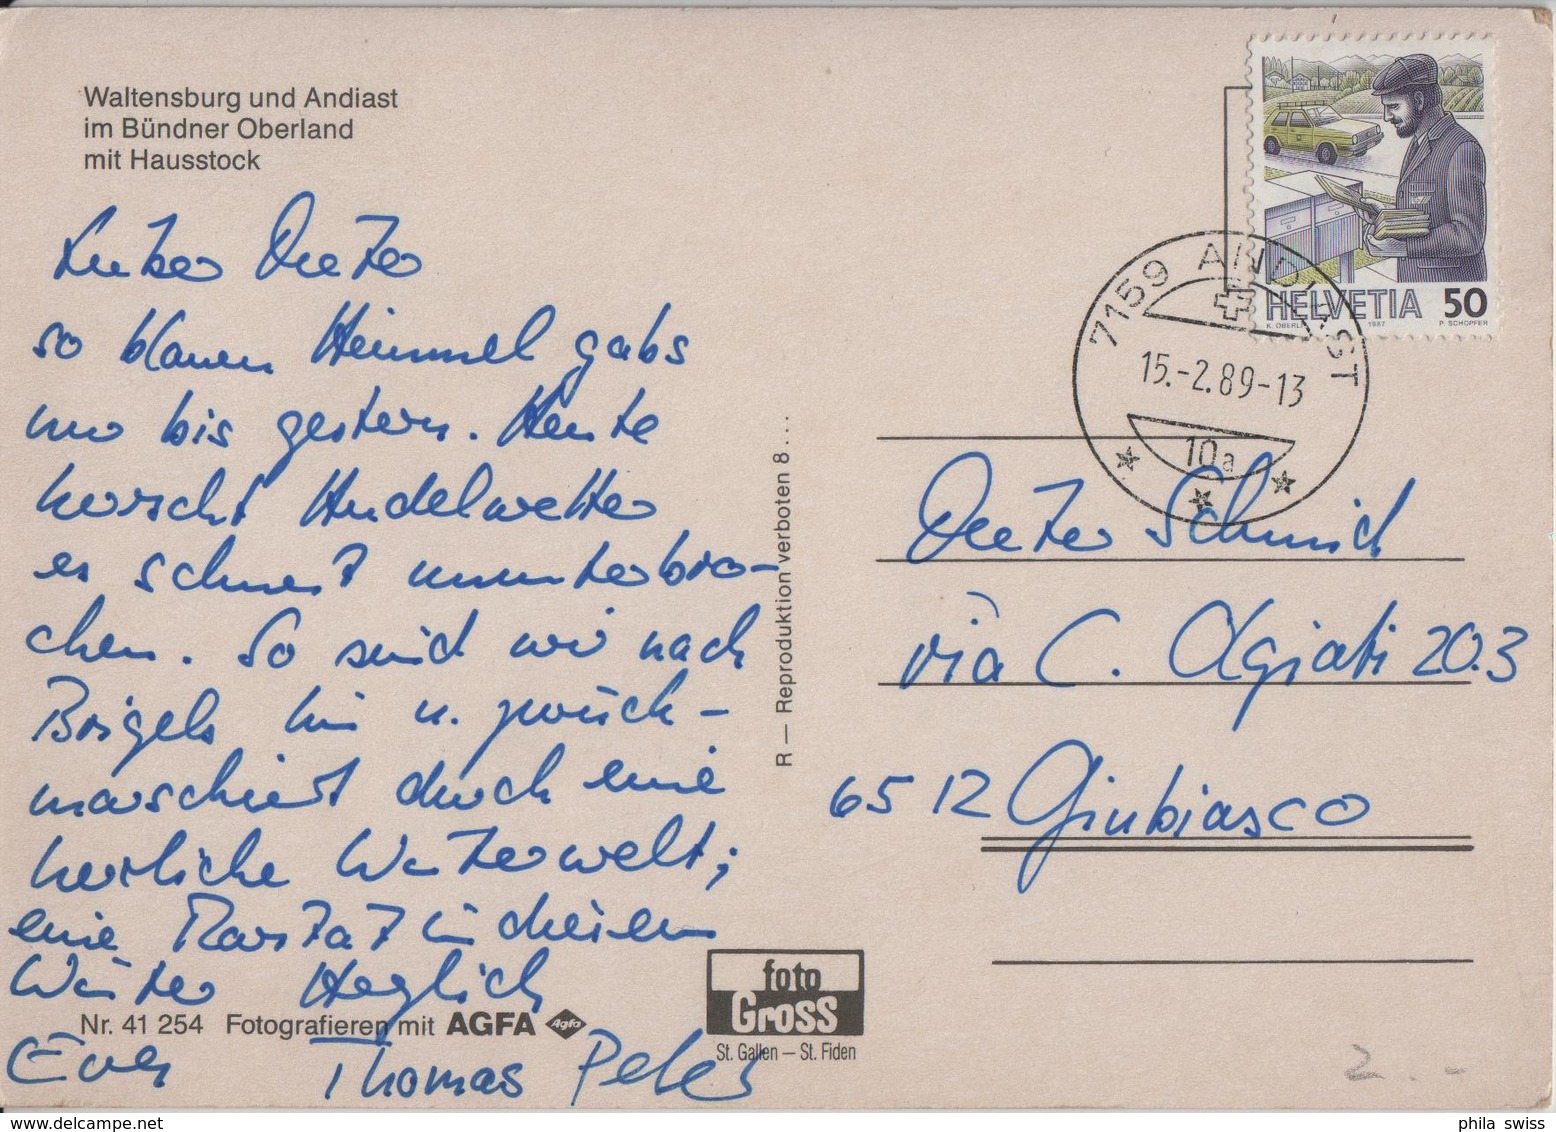 Waltensburg und Andiast
im Bündner Oberland
mit Hausstock
Lieber Dieter
so blauen Himmel gabs
nur bis gestern. Heute
herrscht Hudelwetter
es schneit ununterbro-
chen. So sind wir nach
Brigels hin u. zurück-
marschiert durch eine
herrliche Winterwelt;
eine Rarität in diesem
Winter Herzlich
Thomas Peter
Nr. 41 254 Fotografieren mit AGFA Agfa
foto
Gross
St. Gallen – St. Fiden
R — Reproduktion verboten 8....
HELVETIA 50
1987 P. SCHOPFER
7159 ANDIAST
15.-2.89-13
10a
Dieter Schmid
via C. Olgiati 20.3
6512 Giubiasco
2.-
phila swiss
www.delcampe.net